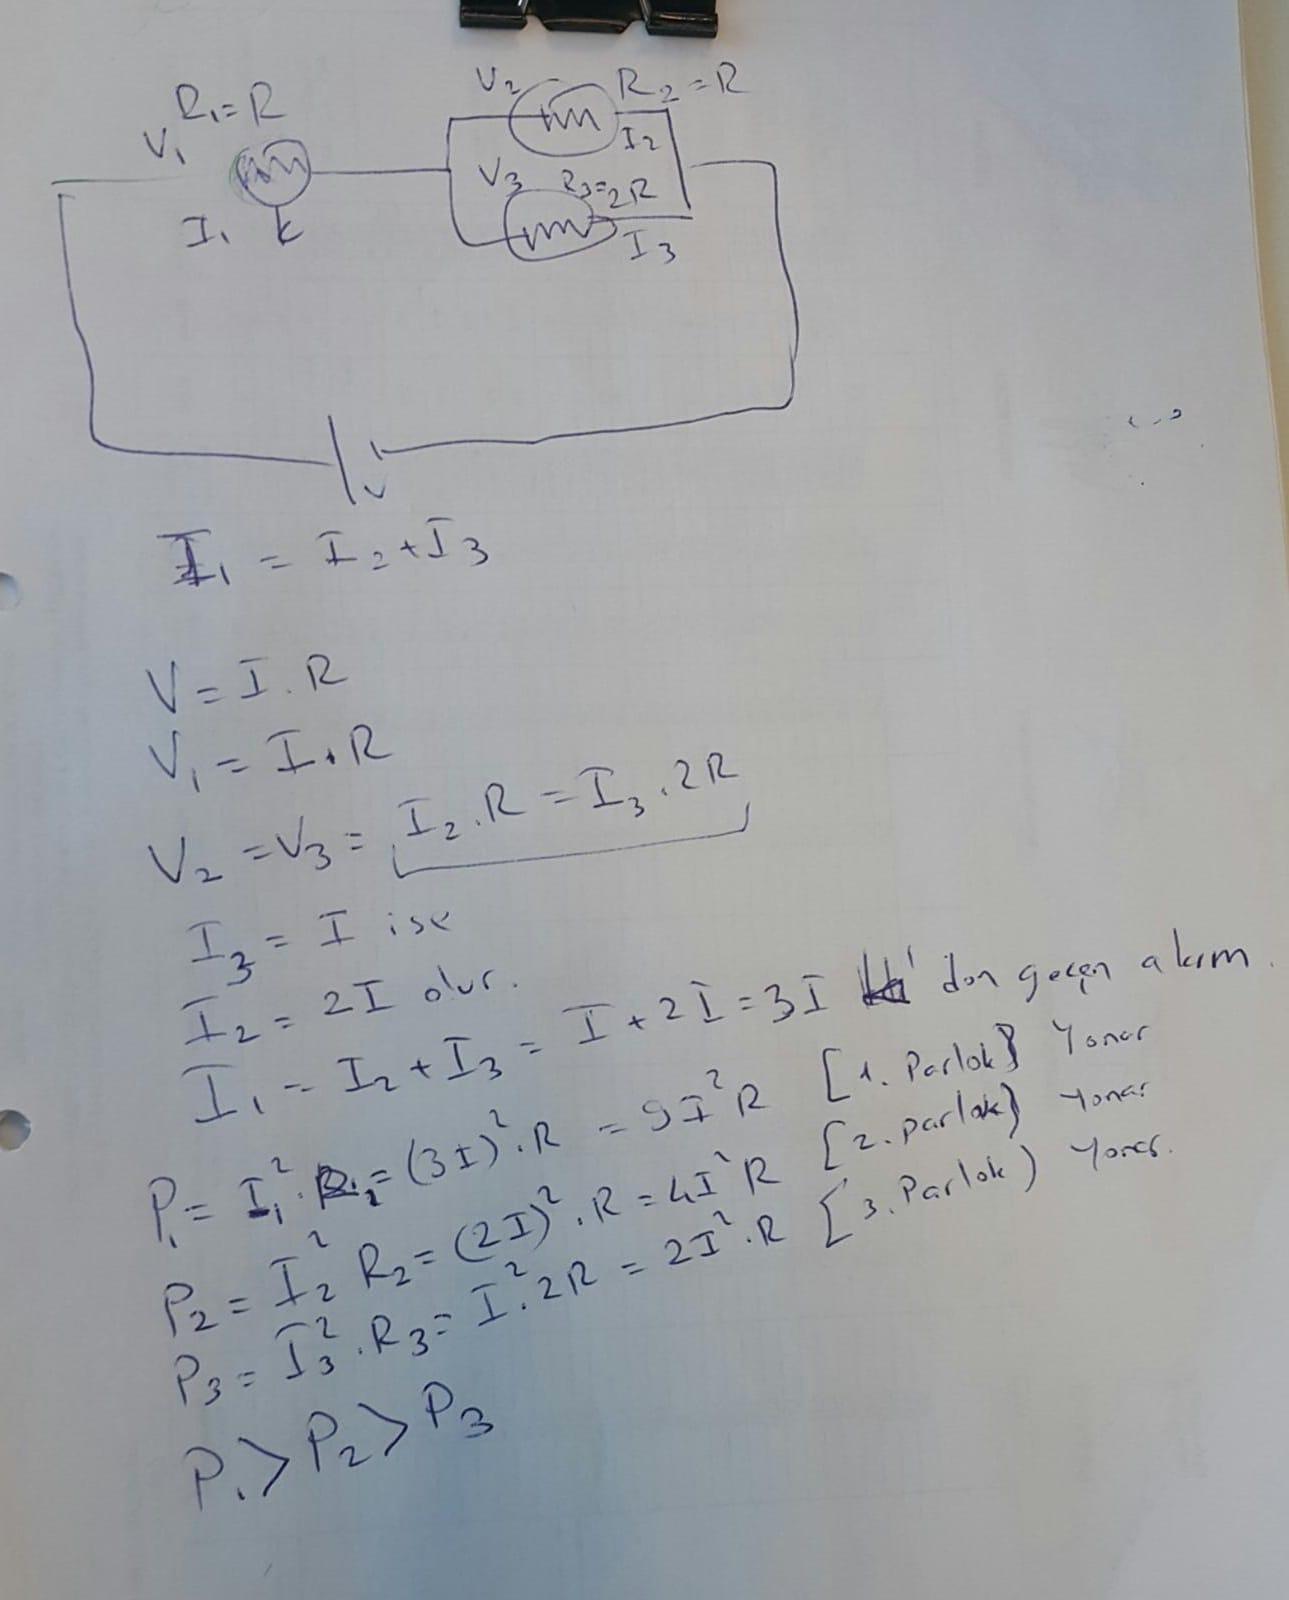 R₁=R
V₁
I₁
k
V₂
R₂=R
I₂
V₃
R₃=2R
I₃
V
I₁ = I₂+I₃
V=I.R
V₁=I.R
V₂=V₃= I₂.R=I₃.2R
I₃=I ise
I₂=2I olur.
I₁=I₂+I₃=I+2I=3I dan geçen akım.
P₁=I₁².R₁=(3I)².R=9I²R [1. Parlak] Yanar
P₂=I₂² R₂=(2I)².R=4I²R [2. parlak] yanar
P₃=I₃².R₃=I².2R=2I².R [3. Parlak) Yanar.
P₁>P₂>P₃